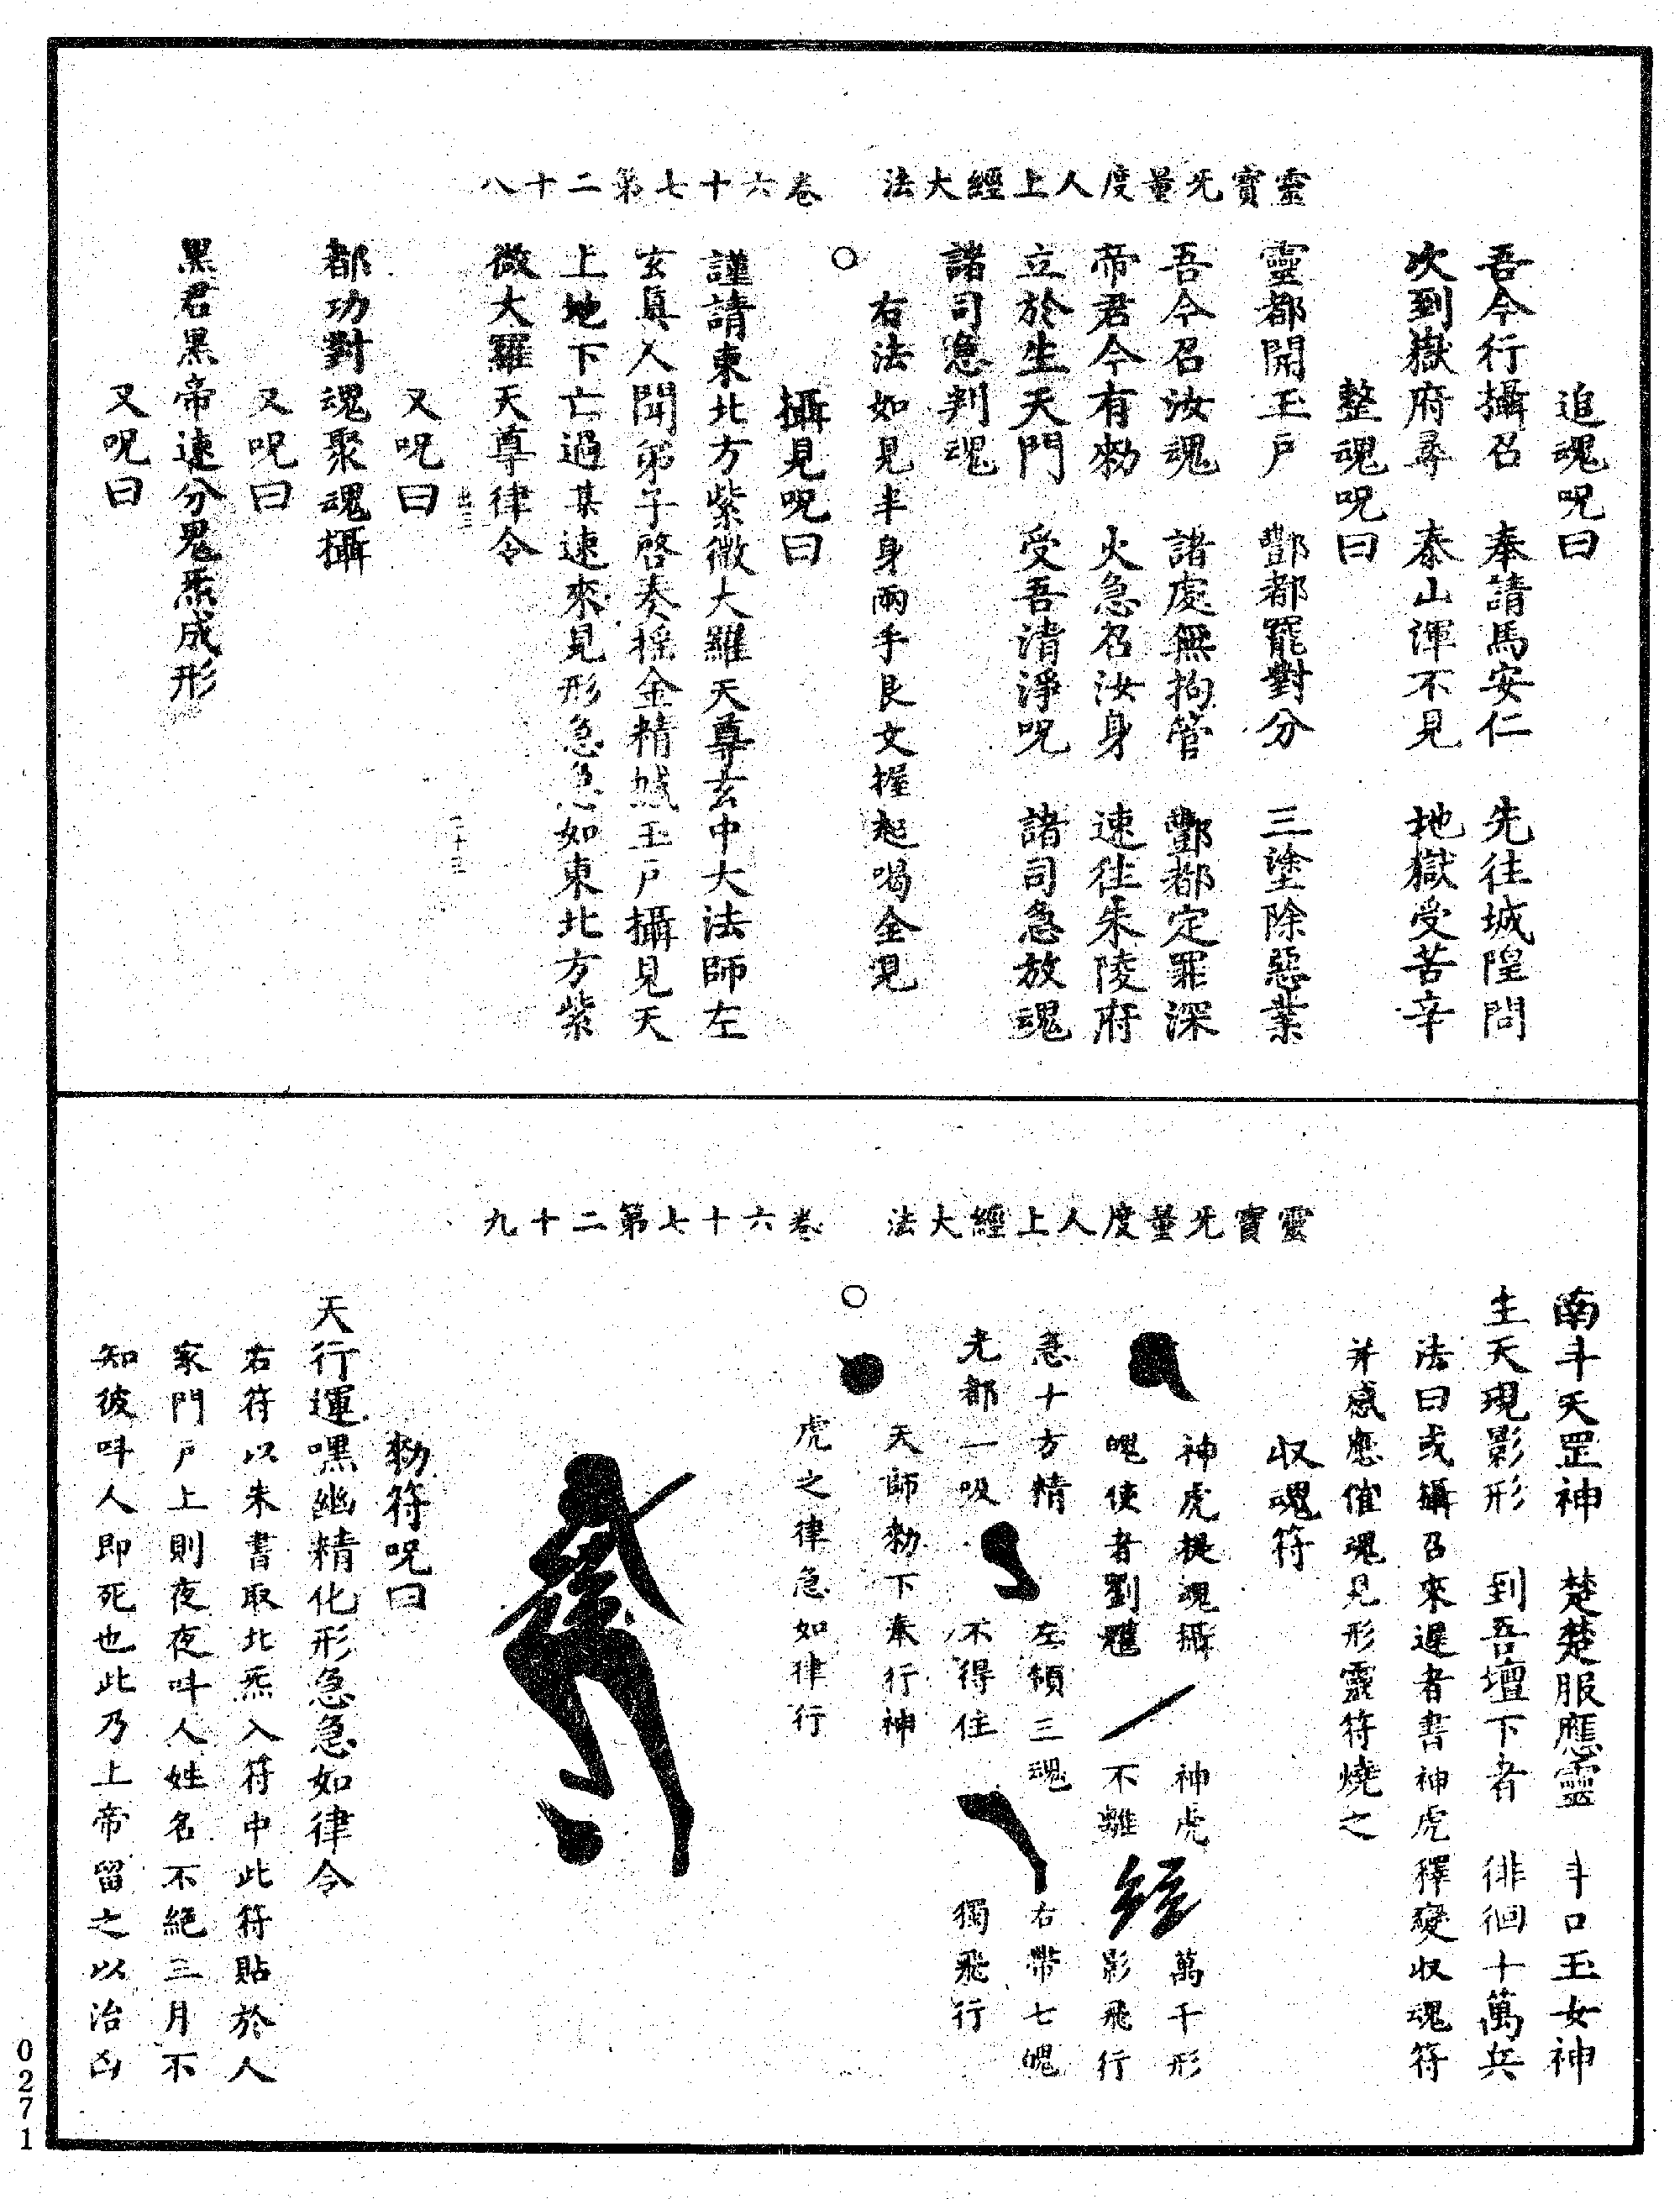 靈寶无量度人上經大法　卷六十七第二十八
追魂呪曰
吾今行攝召　奉請馬安仁　先往城隍問
次到嶽府尋　泰山渾不見　地獄受苦辛
整魂呪曰
靈都開玉戶　酆都罷對分　三塗除惡業
吾今召汝魂　諸處無拘管　酆都定罪深
帝君今有勑　火急召汝身　速往朱陵府
立於生天門　受吾清淨呪　諸司急放魂
諸司急判魂
右法如見半身兩手艮文握起喝全見
○
攝見呪曰
謹請東北方紫微大羅天尊玄中大法師左
玄真人聞弟子啓奏搖金精城玉戶攝見天
上地下亡過某速來見形急急如東北方紫
微大羅天尊律令
又呪曰
都功對魂聚魂攝
又呪曰
黑君黑帝速分鬼炁成形
又呪曰
靈寶无量度人上經大法　卷六十七第二十九
南斗天罡神　楚楚服應靈　斗口玉女神
生天現影形　到吾壇下者　徘徊十萬兵
法曰或攝召來遲者書神虎釋變収魂符
并感應催魂見形靈符燒之
収魂符
神虎捉魂攝　神虎　萬千形
魄使者劉　不離　影飛行
急十方精　左領三魂　右帶七魄
光都一吸　不得住　獨飛行
天師勑下奉行神
虎之律急如律行
○
勑符呪曰
天行運嘿幽精化形急急如律令
右符以朱書取北炁入符中此符貼於人
家門戶上則夜夜呌人姓名不絕三月不
知彼呌人即死也此乃上帝留之以治凶
0271